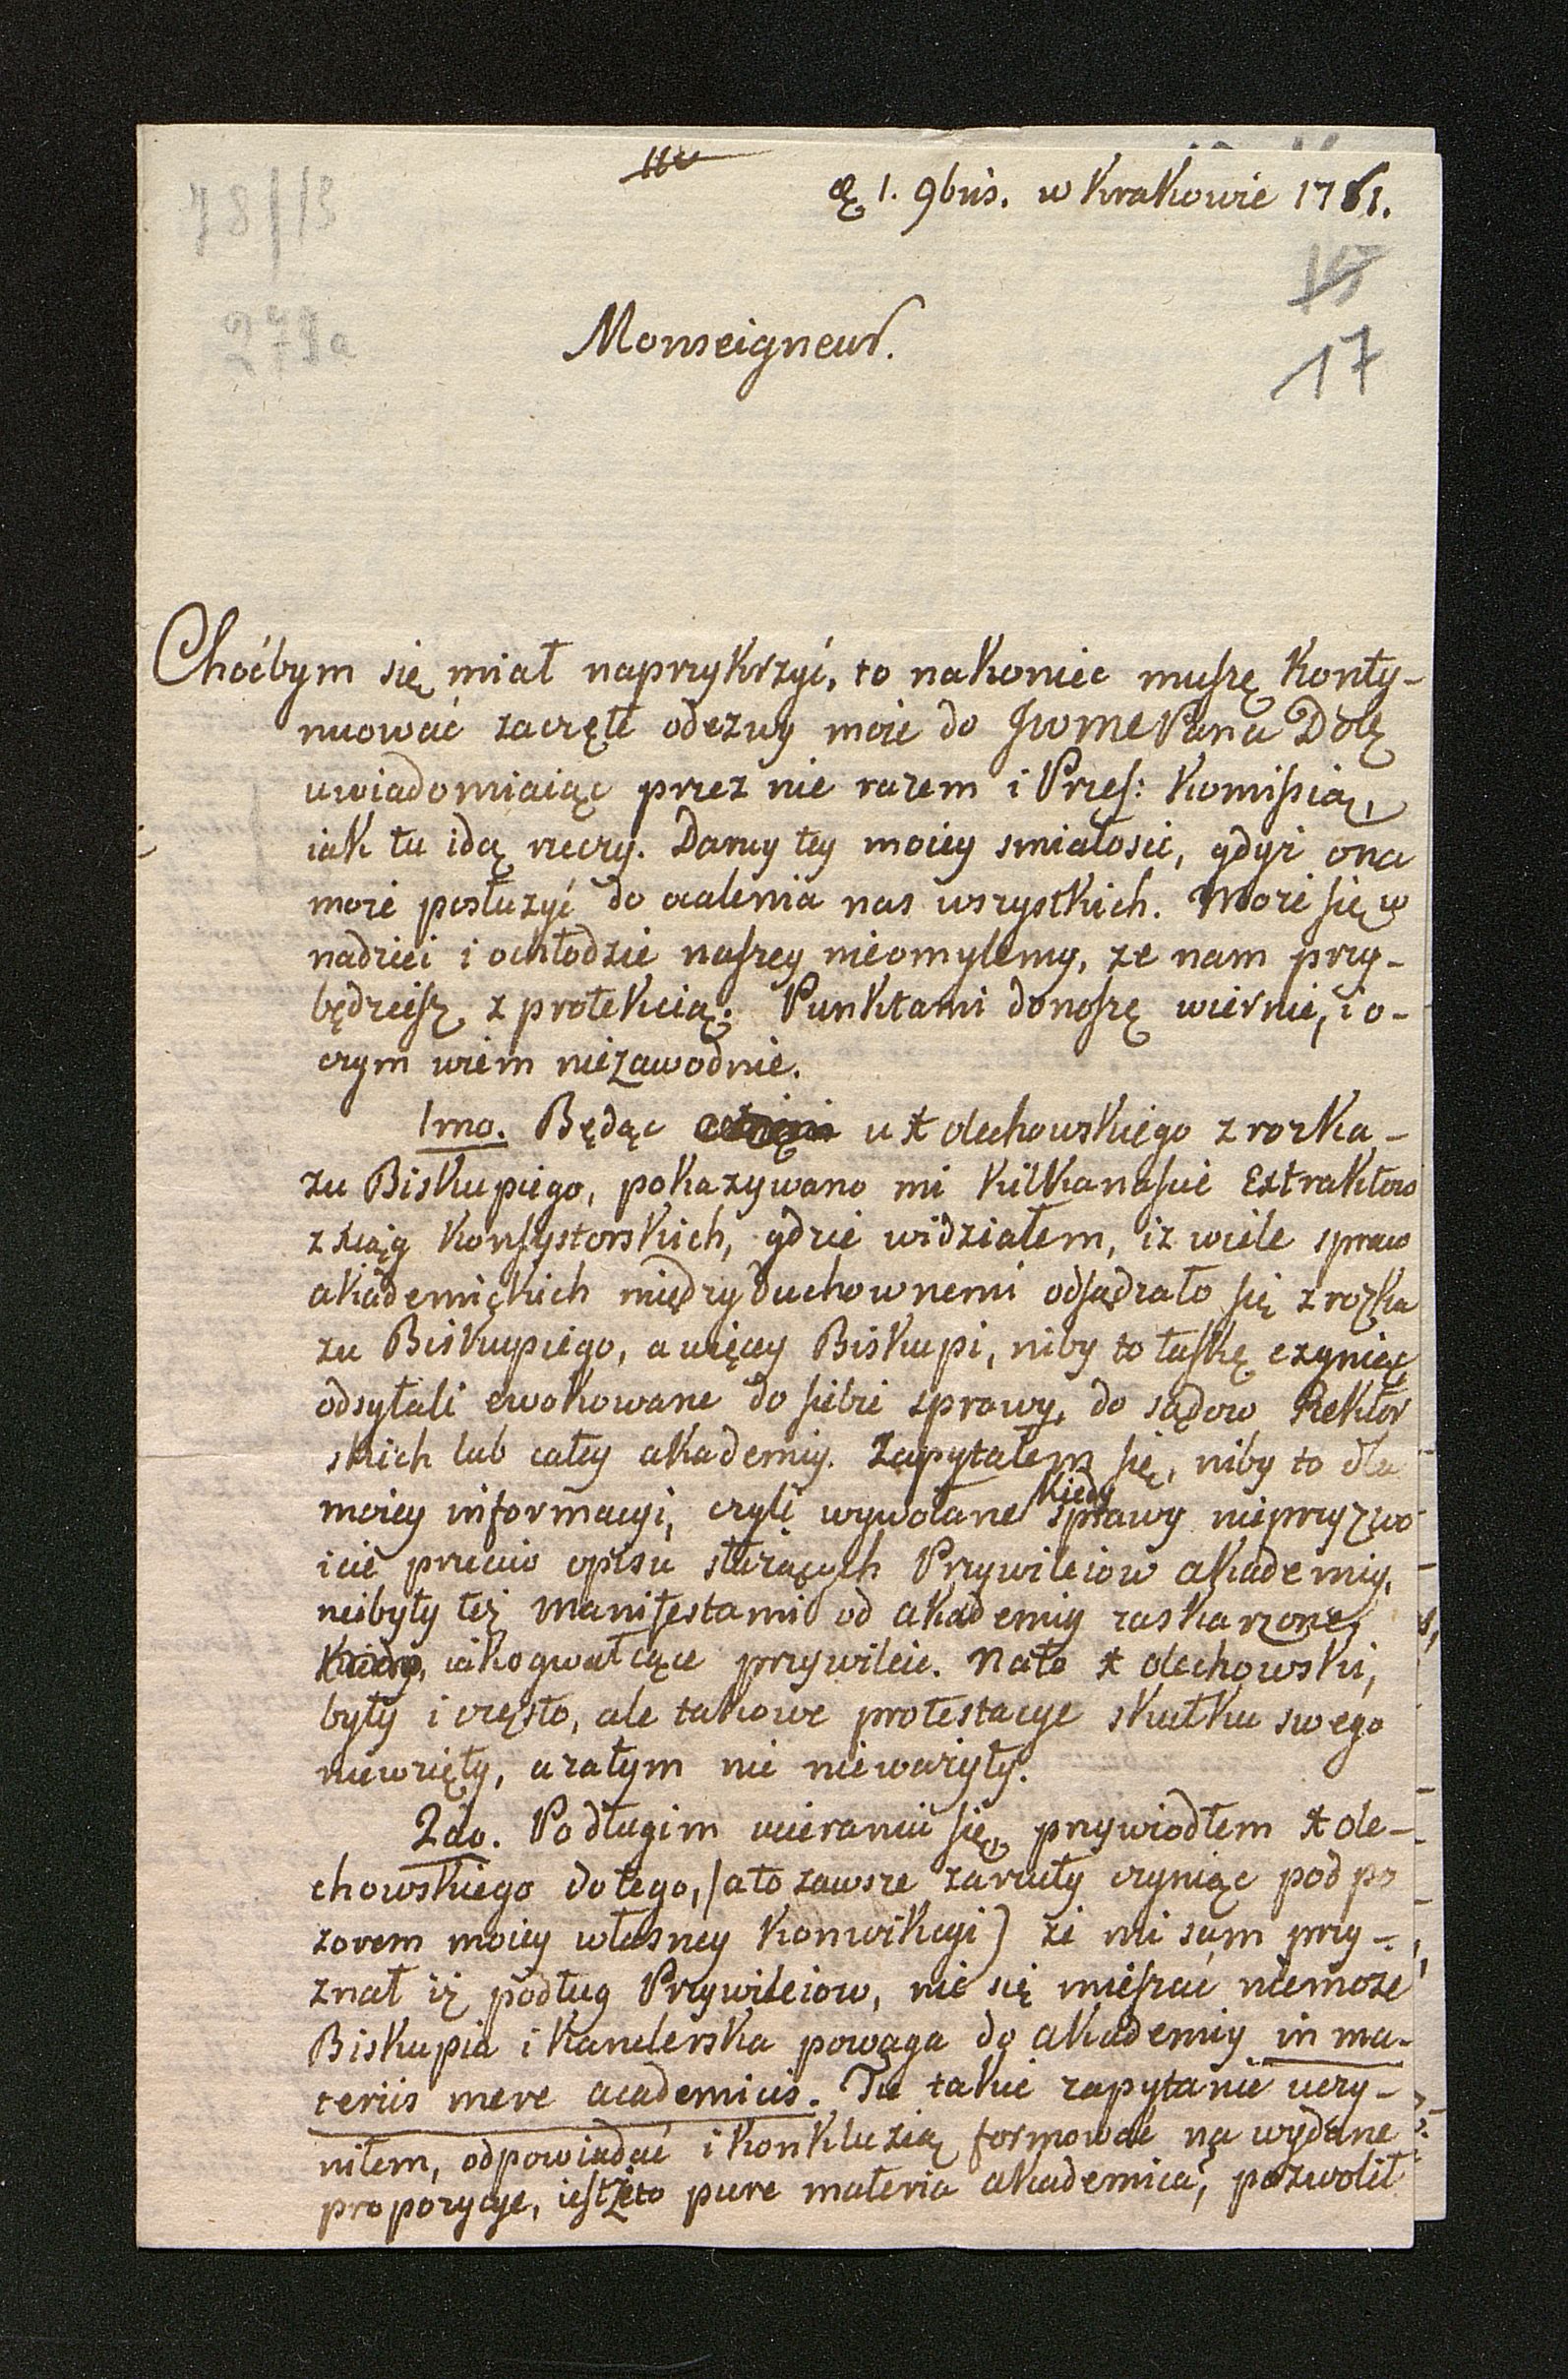 1. 9bris. w Krakowie 1781.
78/13
15
279a
Monseigneur.
17
Choćbym się miał naprzykrzyć, to nakoniec muszę konty-
nuować zaczęte odezwy moie do JWMC Pana Dobę
uwiadomiaiąc przez nie razem i Prześ: Komissią,
iak tu idą rzeczy. Daruy tey moiey smiałosci, gdyż ona
może posłużyć do ocalenia nas wszystkich. Może się w
nadziei i ochłodzie naszey nieomylemy, że nam przy-
będziesz z protekcią. Punktami donoszę wiernie, i o-
czym wiem niezawodnie.
1mo. Będąc u X Olechowskiego z rozka-
zu Biskupiego, pokazywano mi kilkanaście Extraktow
z xiąg konsystorskich, gdzie widziałem, iż wiele spraw
akademickich między duchownemi odsądzało się z rozka
zu Biskupiego, a więcey Biskupi, niby to łaskę czyniąc
odsyłali ewokowane do siebie sprawy, do sądow Rektor
skich lub całey akademiy. Zapytałem się, niby to dla
moiey informacyi, czyli wywołane kiedy sprawy nieprzyzwo
icie przeciw opisu służących Przywileiow akademiy,
niebyły też manifestami od akademiy zaskarzone,
iako gwałcące przywileie. Nato X Olechowski,
były i często, ale takowe protestacye skutku swego
niewzięły, a zatym nic nieważyły.
2do. Po długim ucieraniu się, przywiodłem X Ole-
chowskiego do tego, (a to zawsze zarzuty czyniąc pod po
zorem moiey własney konwikcyi) że mi sam przy-
znał iż podług Przywileiow, nic się mieszać niemoże
Biskupia i Kanclerska powaga do akademiy in ma-
teriis mere academicis. Tu takie zapytanie uczy-
niłem, odpowiadać i konkluzią formować na wydane
propozycye, iest że to pure materia akademica, pozwolił